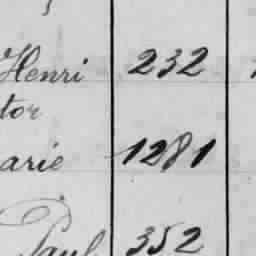 Henri 232
tor
arie 1281
Paul 352